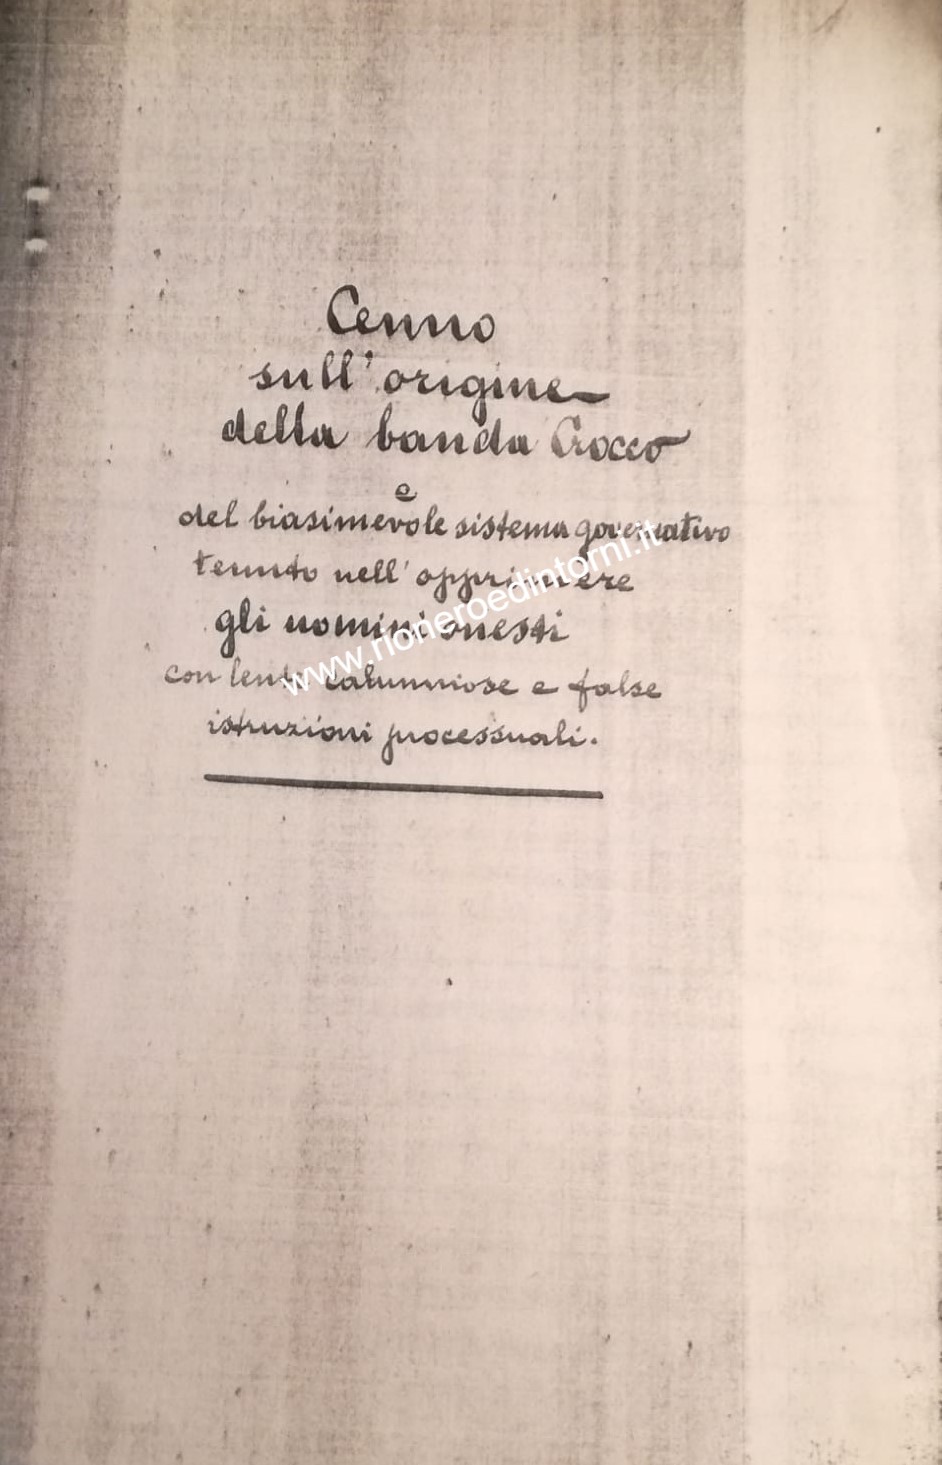 Cenno
sull'origine
della banda Crocco
e
del biasimevole sistema governativo
tenuto nell'opprimere
gli uomini onesti
con lente calunniose e false
istruzioni processuali.
www.rioneroedintorni.it